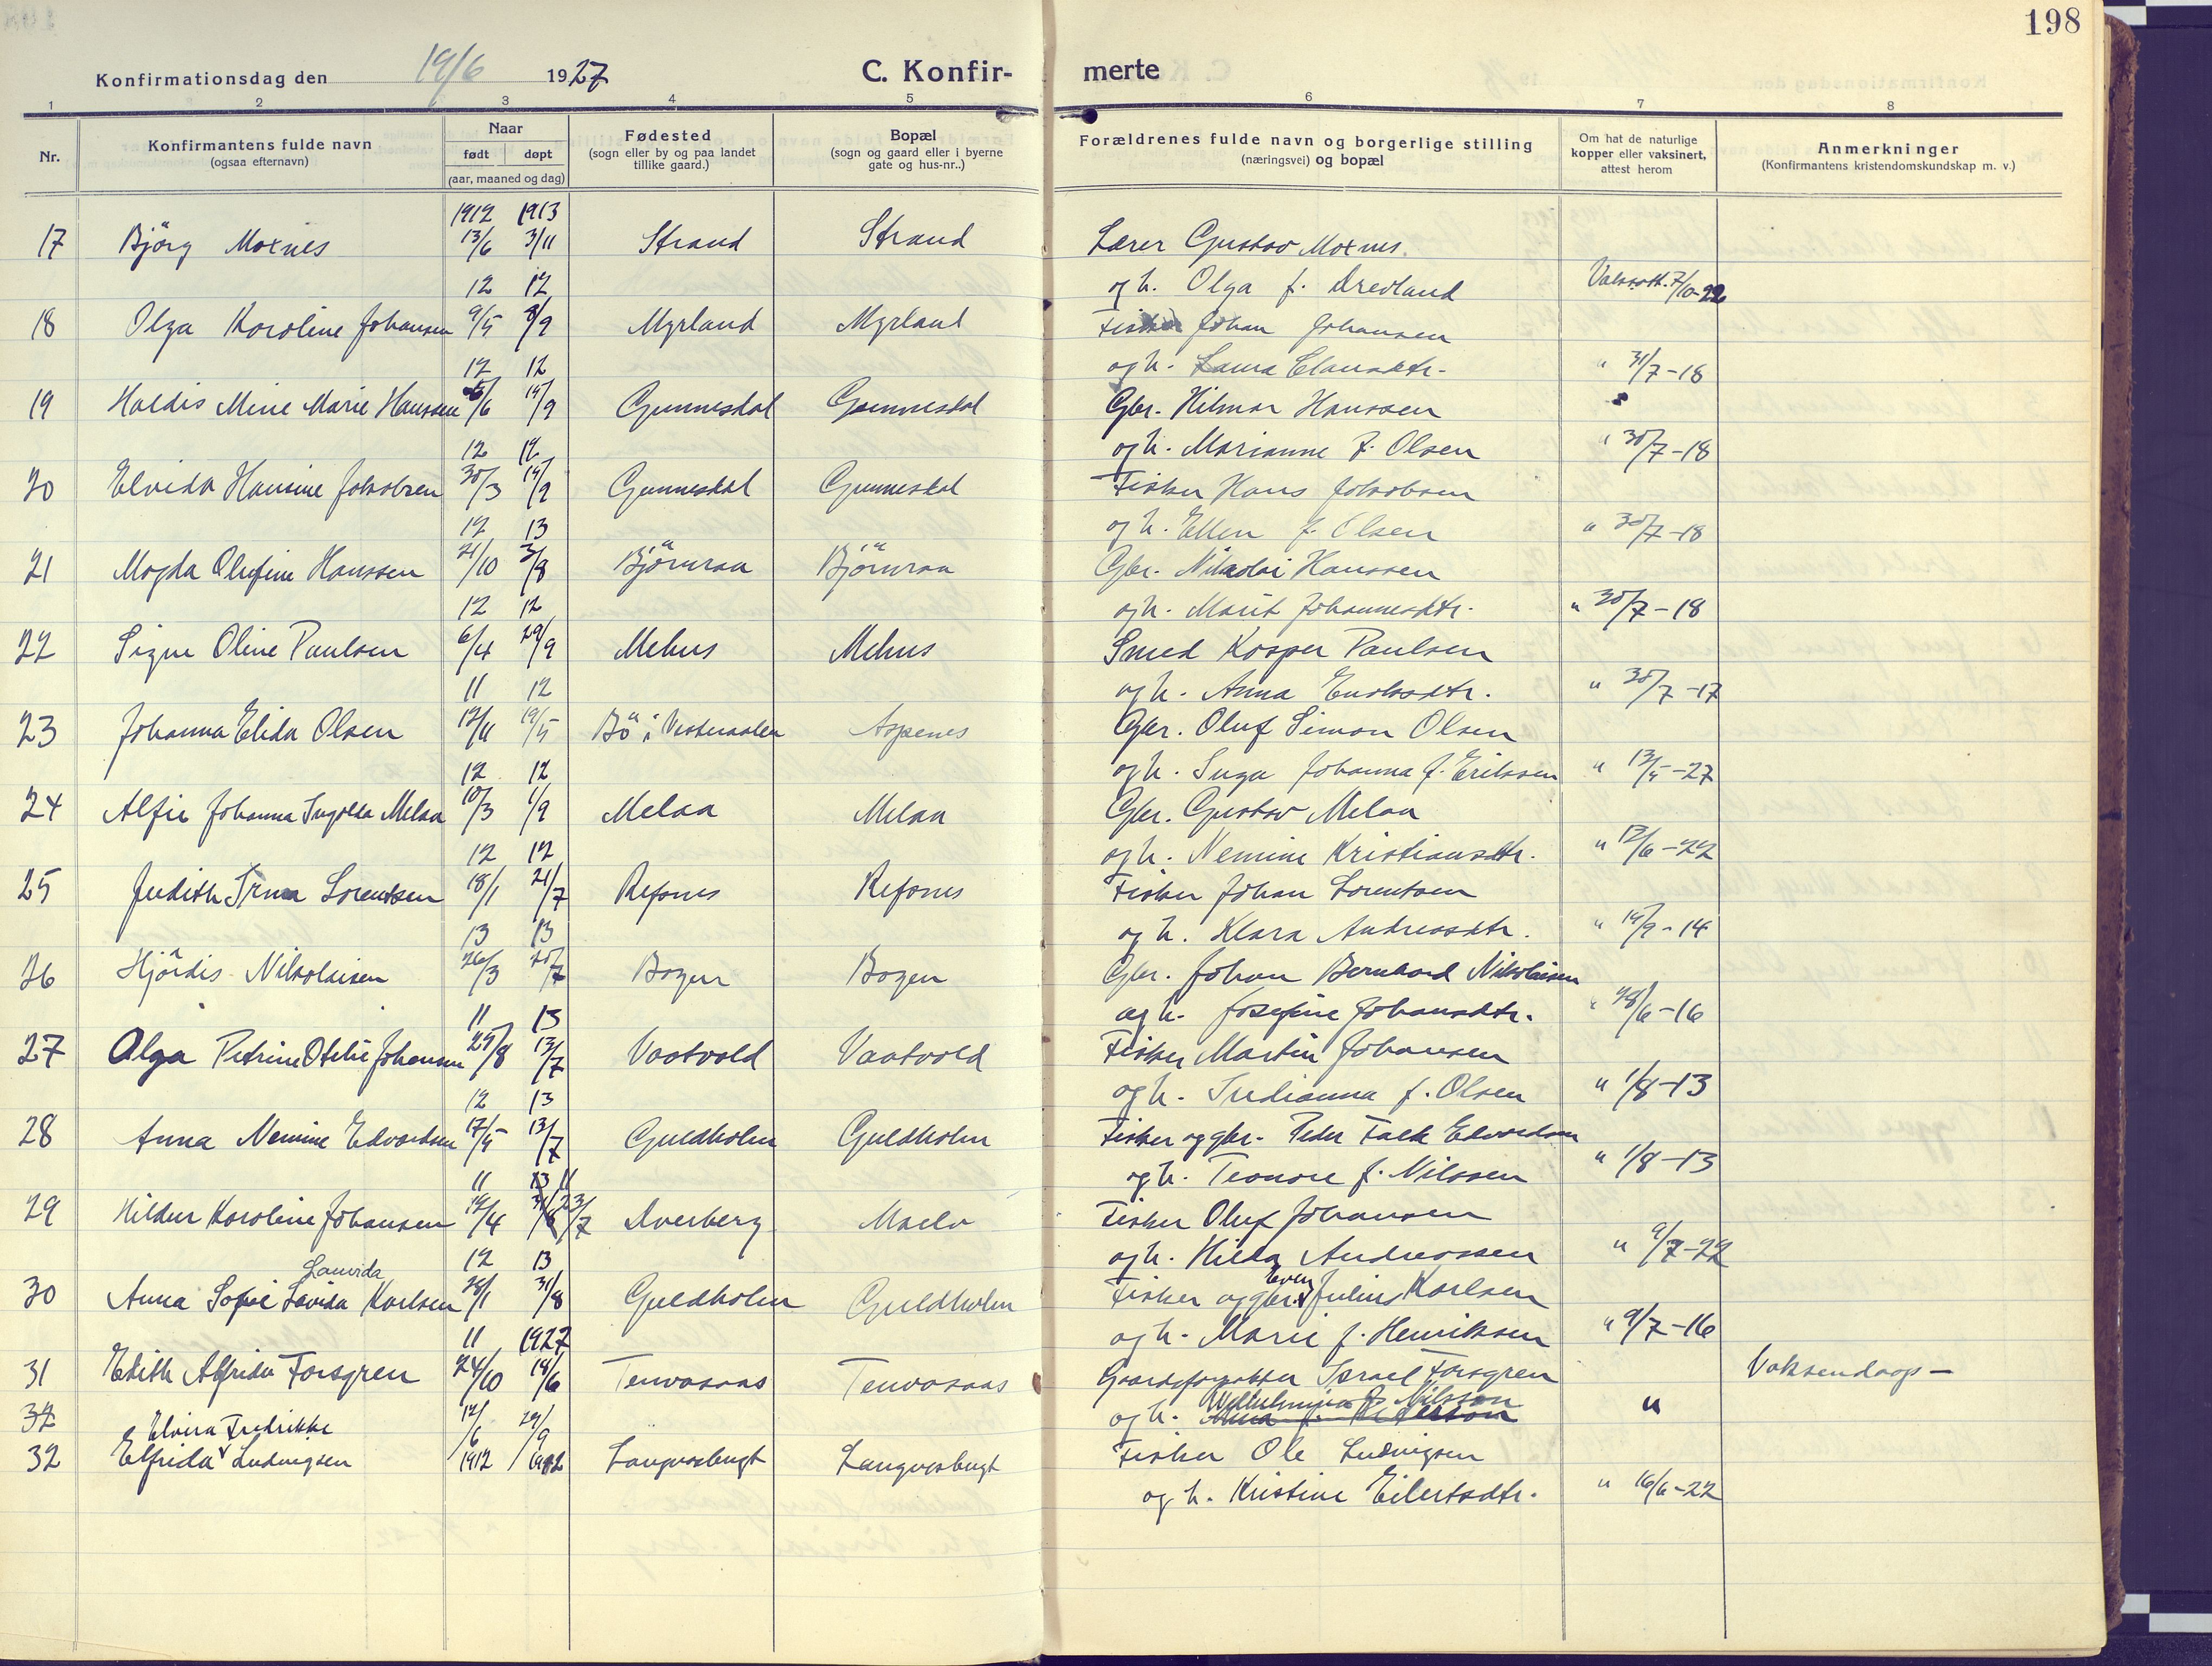 198
Konfirmationsdag den 19/6 1927 C. Konfir- merte
1 2 3 4 5 6 7 8
Nr.
Konfirmantens fulde navn
(ogsaa efternavn)
Naar
født døpt
(aar, maaned og dag)
Fødested
(sogn eller by og paa landet
tillike gaard.)
Bopæl
(sogn og gaard eller i byerne
gate og hus-nr..)
Forældrenes fulde navn og borgerlige stilling
(næringsvei) og bopæl
Om hat de naturlige
kopper eller vaksinert,
attest herom
Anmerkninger
(Konfirmantens kristendomskundskap m. v.)
1912 1913
17 Björg Moxnes 13/6 3/11 Strand Strand Lærer Gustav Moxnes.
og h. Olga f. Dredland 7/10-22
12 12
18 Olga Karoline Johansen 9/5 8/9 Myrland Myrland Fisker Johan Johansen
og h. Laura Clausdtr. " 31/7-18
12 12
19 Haldis Mine Marie Hanssen 5/6 14/9 Gunnesdal Gunnesdal Gbr. Hilmar Hanssen
og h. Marianne f. Olsen " 30/7-18
12 12
20 Elvida Hansine Jakobsen 30/3 14/9 Gunnesdal Gunnesdal Fisker Hans Jakobsen
og h. Ellen f. Olsen " 30/7-18
12 13
21 Magda Olufine Hanssen 21/10 3/8 Björnraa Björnraa Gbr. Nikolai Hanssen
og h. Marit Johannesdtr. " 30/7-18
12 12
22 Signe Oline Paulsen 6/4 29/9 Mehus Mehus Smed Kasper Paulsen
og h. Anna Enoksdtr. " 30/7-17
11 12
23 Johanna Elida Olsen 12/11 19/5 Bö i Vesteraalen Aspenes Gbr. Oluf Simon Olsen
og h. Inga Johanna f. Eriksen " 13/5-27
12 12
24 Alfie Johanna Ingolda Melaa 10/3 1/9 Melaa Melaa Gbr. Gustav Melaa
og h. Nemine Kristiansdtr. " 13/6-22
12 12
25 Judith Irma Lorentsen 18/1 21/7 Refsnes Refsnes Fisker Johan Lorentsen
og h. Klara Andreasdtr. " 19/9-14
13 13
26 Hjördis Nikolaisen 26/3 20/7 Bogen Bogen Gbr. Johan Bernhard Nikolaisen
og h. Josefine Johansdtr. " 28/6-16
11 13
27 Olga Petrine Otelie Johansen 29/8 13/7 Vaatvold Vaatvold Fisker Martin Johansen
og h. Indianna f. Olsen " 1/8-13
12 13
28 Anna Nemine Edvardsen 17/5 13/7 Guldholm Guldholm Fisker og gbr. Peder Falk Edvardsen
og h. Teonore f. Nilssen " 1/8-13
11 13 11
29 Hildur Karoline Johansen 19/4 31/8 23/7 Dverberg Maelv Fisker Oluf Johansen
og h. Hilda Andreassen " 9/7-22
Lauvida 12 13 Even
30 Anna Sofie Lovida Karlsen 28/1 31/8 Guldholm Guldholm Fisker og gbr. Julius Karlsen
og h. Marie f. Henriksen " 9/7-16
11 1927
31 Edith Alfrida Forsgren 24/10 19/6 Tenvasaas Tenvasaas Gaardsforpakter Israel Forsgren Voksendaap-
Wilhelmina f. Nilsson
og h. "
32 Elvira Fredrikke 12/6 29/9
32 Elfrida Ludvigsen 1912 1912 Langvasbugt Langvasbugt Fisker Ole Ludvigsen
og h. Kristine Eilertsdtr. " 16/6-22